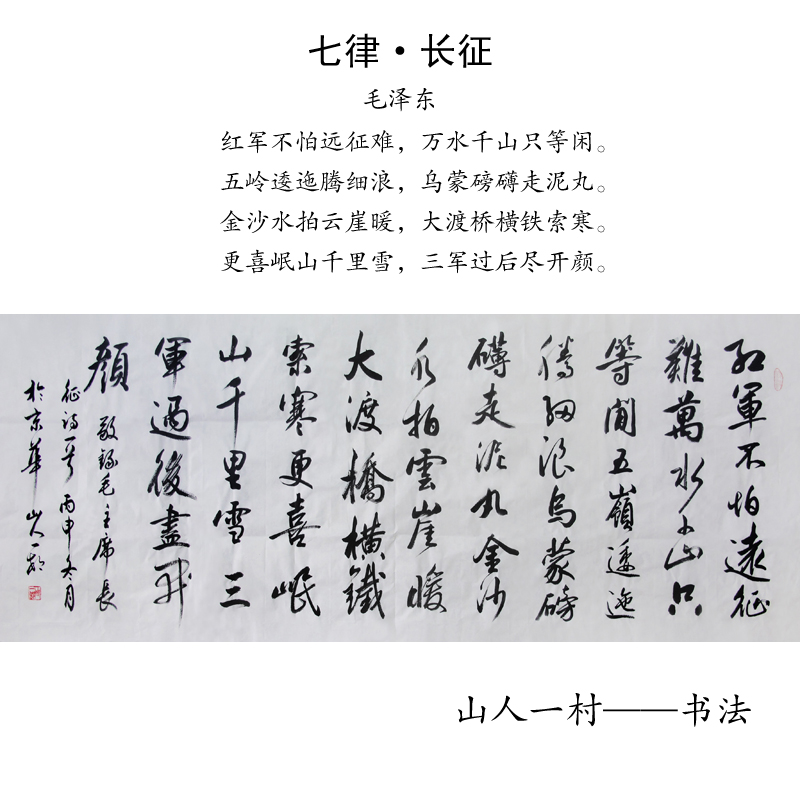 七律·长征
毛泽东
红军不怕远征难，万水千山只等闲。
五岭逶迤腾细浪，乌蒙磅礴走泥丸。
金沙水拍云崖暖，大渡桥横铁索寒。
更喜岷山千里雪，三军过后尽开颜。
紅軍不怕遠征
難萬水千山只
等閒五嶺逶迤
騰細浪烏蒙磅
礴走泥丸金沙
水拍雲崖暖
大渡橋橫鐵
索寒更喜岷
山千里雪三
軍過後盡開
顏 敬錄毛主席長
征詩一首 丙申冬月
於京華 山人一邨
山人一村——书法